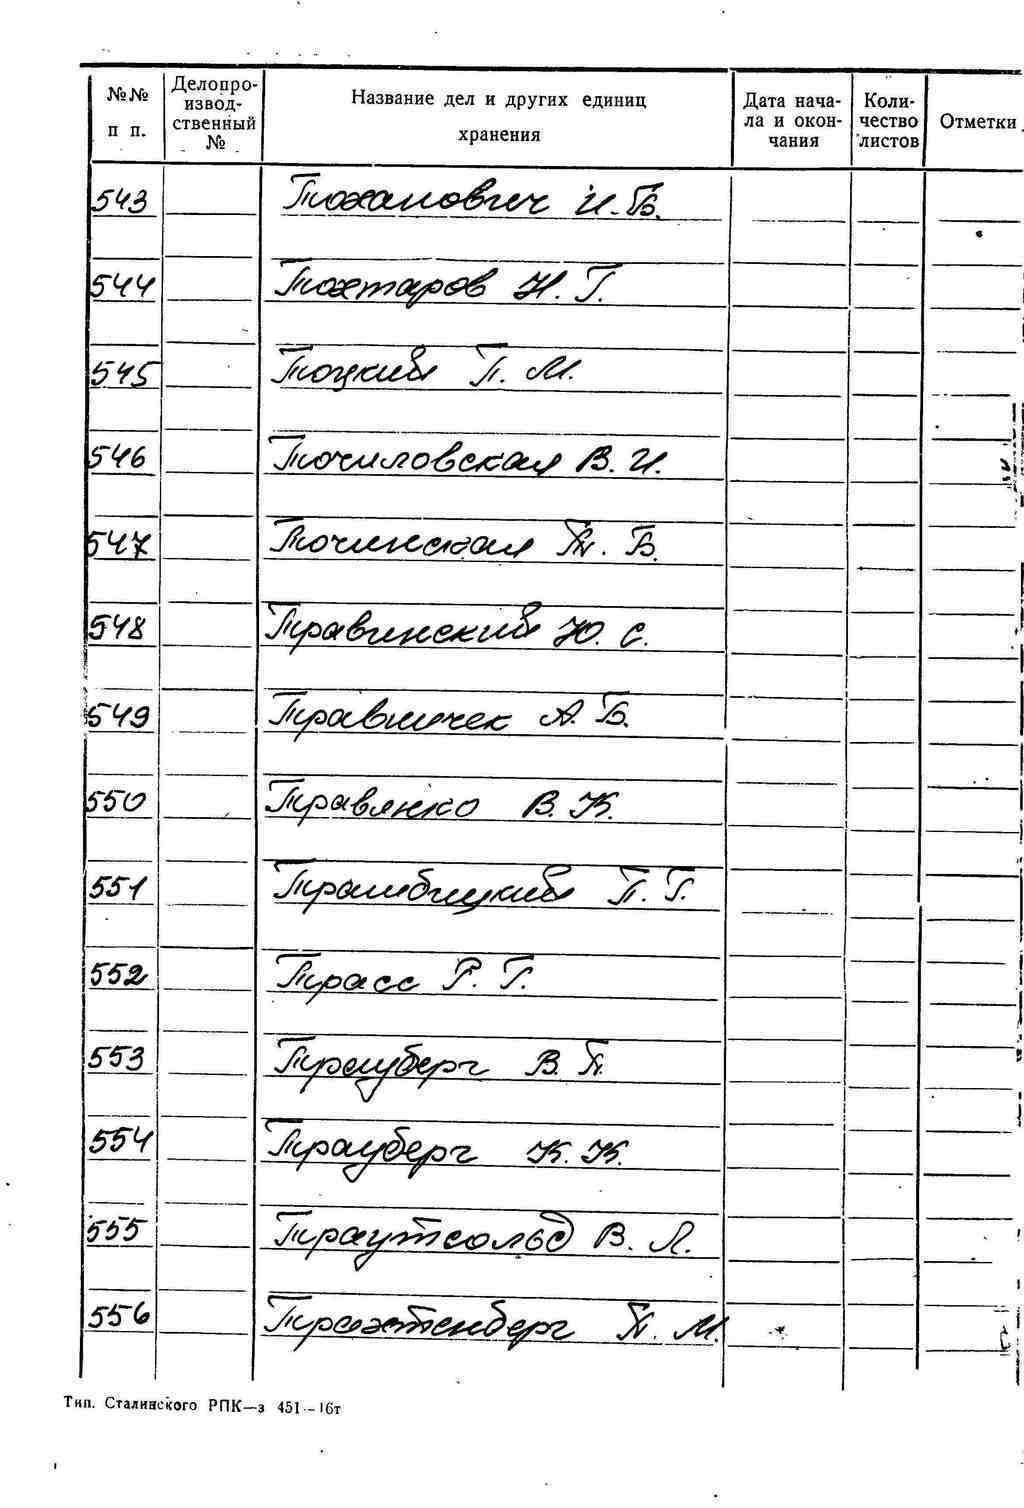 №№ п п. Делопроизводственный № Название дел и других единиц хранения Дата начала и окончания Количество листов Отметки
543 Тоханович И. Б.
544 Тохтаров Н. Г.
545 Тоцкий П. М.
546 Точиловская В. И.
547 Точинская Т. Б.
548 Травинский Ю. С.
549 Травничек А. Б.
550 Травянко В. К.
551 Трамбицкий П. Г.
552 Трасс Р. Г.
553 Трауберг В.
554 Трауберг К. К.
555 Траутсольд В. Л.
556 Трахтенберг М.
Тип. Сталинского РПК—з 451—16т